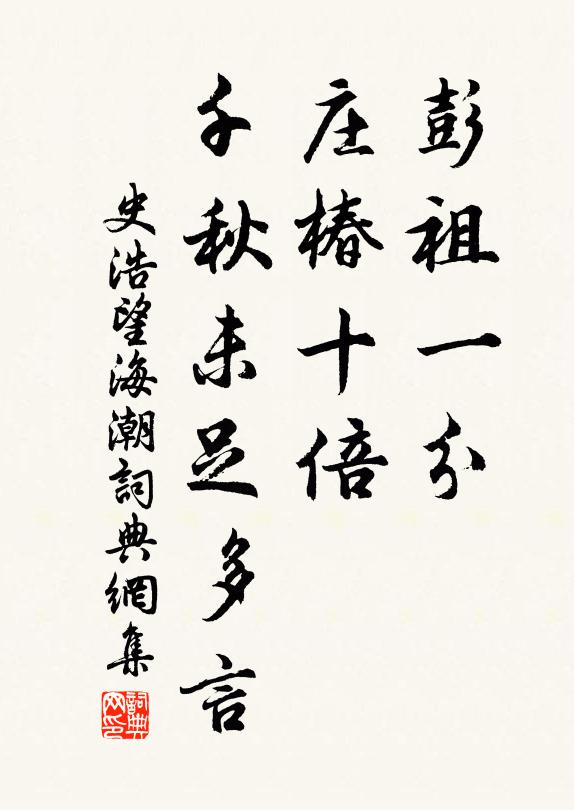 彭祖一分
庄椿十倍
千秋未足多言
史浩望海潮詞典網集
詞典网印